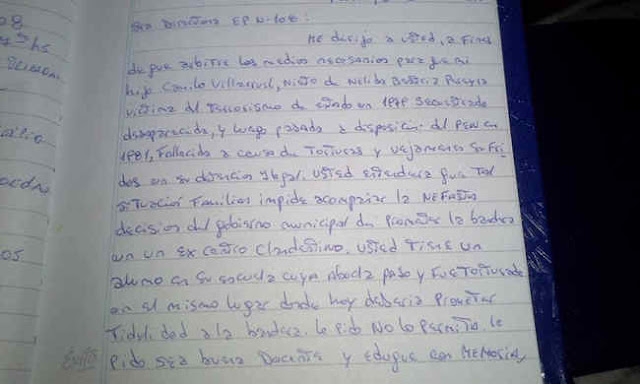 08
hs
Sra Directora EP N-108:
Me dirijo a usted, a fines
de que arbitre los medios necesarios para que mi
hijo Camilo Villarruel, nieto de Nelida Beatriz
victima del Terrorismo de estado en secuestrada
desaparecida, y luego pasada a disposición del PEN en
1981, Fallecida a causa de Torturas y vejamenes sufri
dos en su detención ilegal. Usted entenderá que tal
situación Familiar impide acompañar la NEFASTA
decisión del gobierno municipal de Prometer la bandera
en un ex centro clandestino. Usted Tiene un
alumno en su escuela cuya Abuela paso y Fue Torturada
en el mismo lugar donde hoy deberia Prometer
05
Fidelidad a la bandera. le pido NO lo Permita le
Pido sea buena Docente y eduque con MEMORIA,